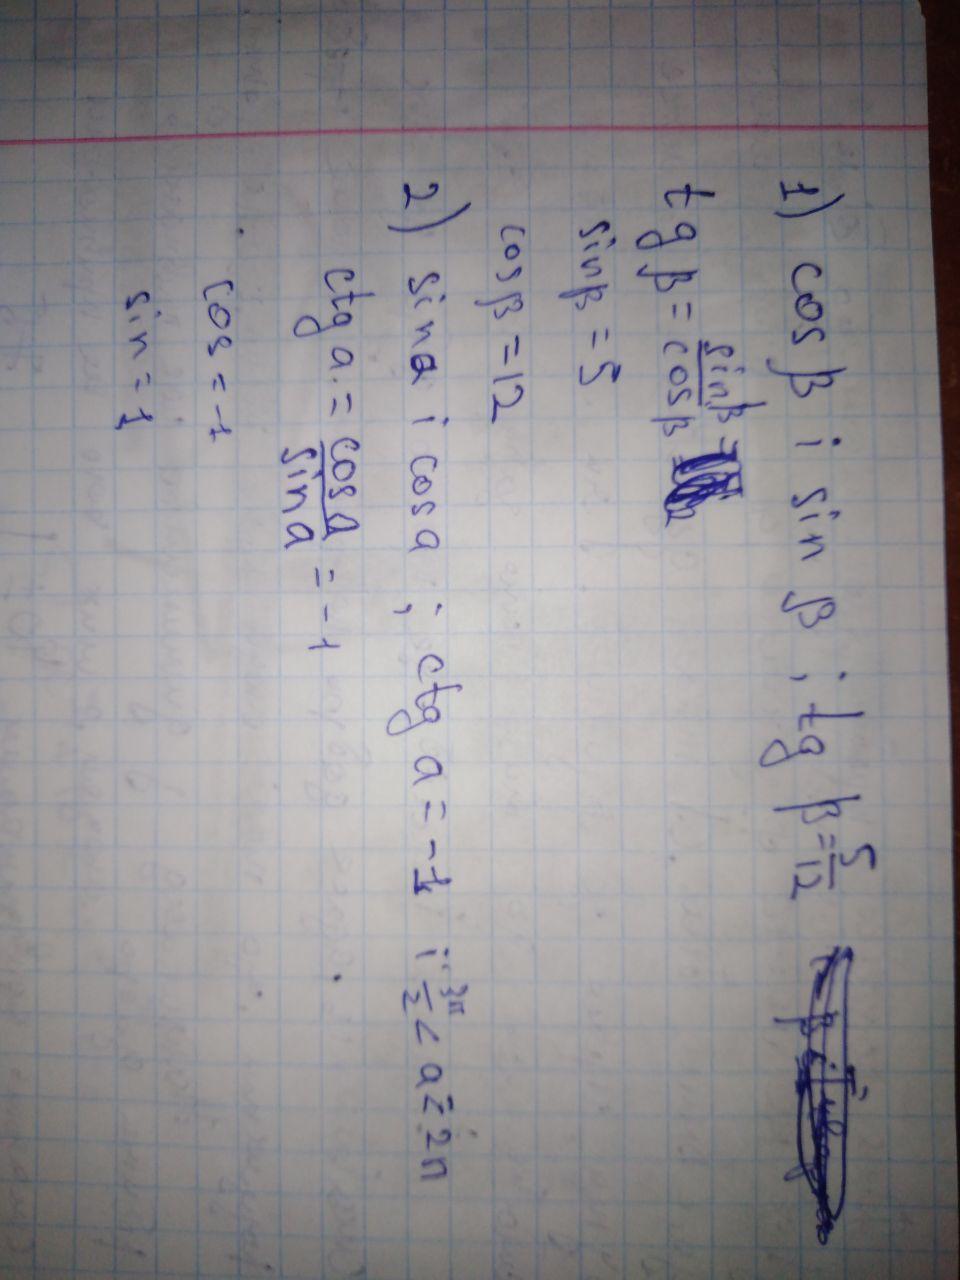 1) cos β i sin β ; tg β = 5/12
tg β = sin β / cos β =
sin β = 5
cos β = 12
2) sin a i cos a ; ctg a = -1 i 3π/2 < a < 2π
ctg a = cos a / sin a = -1
cos = -1
sin = 1